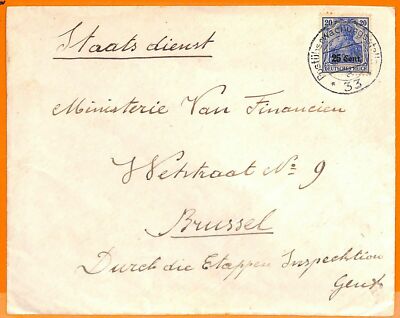 Staats dienst
20 20
25 Cent.
DEUTSCHES REICH
33
Ministerie Van Financien
Wetstraat No 9
Brussel
Durch die Etappen Inspechtion
Gent